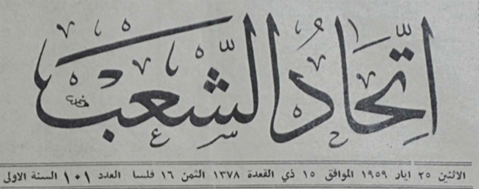 اتِّحَادُ الشَّعب
الاثنين ٢٥ ايار ١٩٥٩ الموافق ١٥ ذي القعدة ١٣٧٨ الثمن ١٦ فلسا العدد ١٠١ السنة الاولى